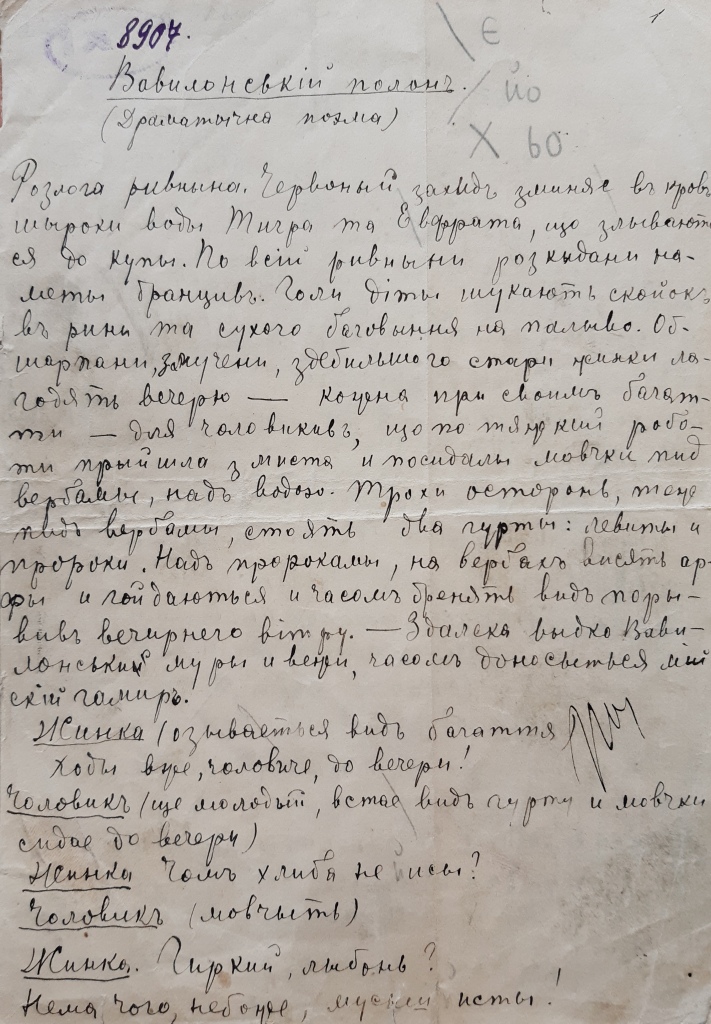 8907.
1
\ є
/ йо
X ьо
Вавилонськiй полонъ.
(Драматычна поэма)
Розлога ривныня. Червоный захидъ зминяе въ кровъ
шыроки воды Тигра та Евфрата, що злывають
ся до купы. По всiй ривныни розкидани на-
меты бранцивъ. Голи дiты шукають скойокъ
въ рини та сухого баговыння на палыво. Об-
шарпани, змучени, здебильшого стари жинки ла-
годять вечерю — кожна при своимъ багат-
ти — для чоловикивъ, що по тяжкий робо-
ти прыйшлы з миста и посидалы мовчки пид
вербамы, над водою. Трохи осторонь, теже
пидъ вербамы, стоять два гурты: левиты и
пророки. Надъ пророкамы, на вербахъ висять ар-
фы и гойдаються и часомъ бренять видъ поры-
вивъ вечирнего вiтру. — Здалека выдко Вави-
лонський муры и вежи, часомъ доносыться мiй
скiй гамиръ.
Жинка (озываеться видъ багаття
Ходы вже, чоловиче, до вечери!
Чоловикъ (ще молодый, встае видъ гурту и мовчки
сидае до вечери)
Жинка Чомъ хлиба не йисы?
Чоловикъ (мовчыть)
Жинка. Гиркий, любонь?
Нема чого, небоже, мусыш исты!